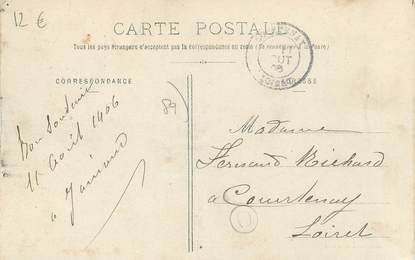 12 €
CARTE POSTALE
Tous les pays étrangers n'acceptent pas la correspondance au recto (Se renseigner à la Poste)
CORRESPONDANCE
89
Bon Souvenir
11 Août 1906
Madame
Fernand Richard
à Courtenay
Loiret